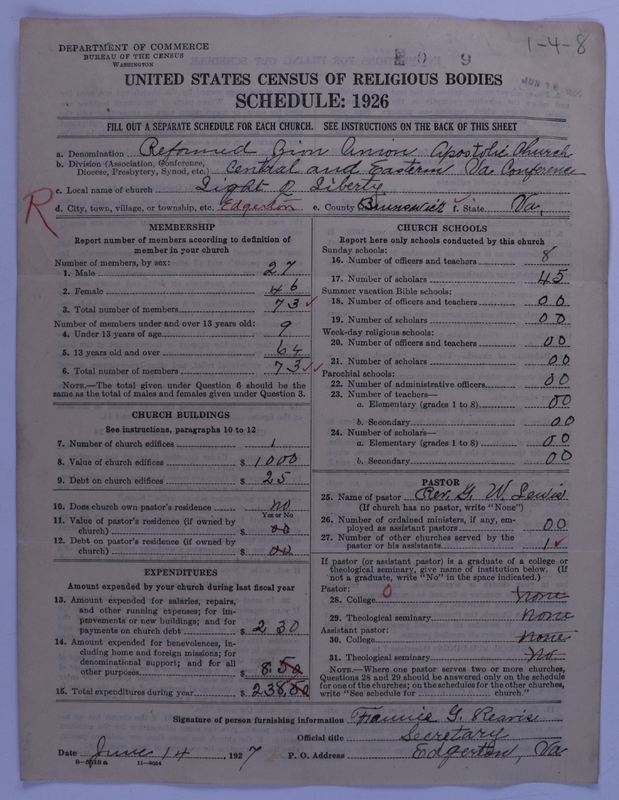 DEPARTMENT OF COMMERCE
BUREAU OF THE CENSUS
WASHINGTON
E 0 9
1-4-8
UNITED STATES CENSUS OF RELIGIOUS BODIES
SCHEDULE: 1926
FILL OUT A SEPARATE SCHEDULE FOR EACH CHURCH. SEE INSTRUCTIONS ON THE BACK OF THIS SHEET
a. Denomination Reformed Zion Union Apostolic Church
b. Division (Association, Conference, Diocese, Presbytery, Synod, etc.) Central and Eastern Va Conference
c. Local name of church Light O Liberty
R
d. City, town, village, or township, etc. Edgerton e. County Brunswick f. State Va,
MEMBERSHIP
Report number of members according to definition of
member in your church
Number of members, by sex:
1. Male 27
2. Female 46
3. Total number of members 73
Number of members under and over 13 years old:
4. Under 13 years of age 9
5. 13 years old and over 64
6. Total number of members 73
NOTE.—The total given under Question 6 should be the
same as the total of males and females given under Question 3.
CHURCH BUILDINGS
See instructions, paragraphs 10 to 12
7. Number of church edifices 1
8. Value of church edifices $ 1000
9. Debt on church edifices $ 25
10. Does church own pastor's residence no
Yes or No
11. Value of pastor's residence (if owned by
church) $ 00
12. Debt on pastor's residence (if owned by
church) $ 00
EXPENDITURES
Amount expended by your church during last fiscal year
13. Amount expended for salaries, repairs,
and other running expenses; for im-
provements or new buildings; and for
payments on church debt $ 230
14. Amount expended for benevolences, in-
cluding home and foreign missions; for
denominational support; and for all
other purposes $ 8.50
15. Total expenditures during year $ 238.50
CHURCH SCHOOLS
Report here only schools conducted by this church
Sunday schools:
16. Number of officers and teachers 8
17. Number of scholars 45
Summer vacation Bible schools:
18. Number of officers and teachers 00
19. Number of scholars 00
Week-day religious schools:
20. Number of officers and teachers 00
21. Number of scholars 00
Parochial schools:
22. Number of administrative officers 00
23. Number of teachers—
a. Elementary (grades 1 to 8) 00
b. Secondary 00
24. Number of scholars—
a. Elementary (grades 1 to 8) 00
b. Secondary 00
PASTOR
25. Name of pastor Rev. G. W. Lewis
(If church has no pastor, write "None")
26. Number of ordained ministers, if any, em-
ployed as assistant pastors 00
27. Number of other churches served by the
pastor or his assistants 1
If pastor (or assistant pastor) is a graduate of a college or
theological seminary, give name of institution below. (If
not a graduate, write "No" in the space indicated.)
Pastor: 0
28. College none
29. Theological seminary none
Assistant pastor:
30. College none
31. Theological seminary No
NOTE.—Where one pastor serves two or more churches,
Questions 28 and 29 should be answered only on the schedule
for one of the churches; on the schedules for the other churches,
write "See schedule for church."
Signature of person furnishing information Fannie G. Reavis
Official title Secretary
Date June 14, 1927 P. O. Address Edgerton, Va